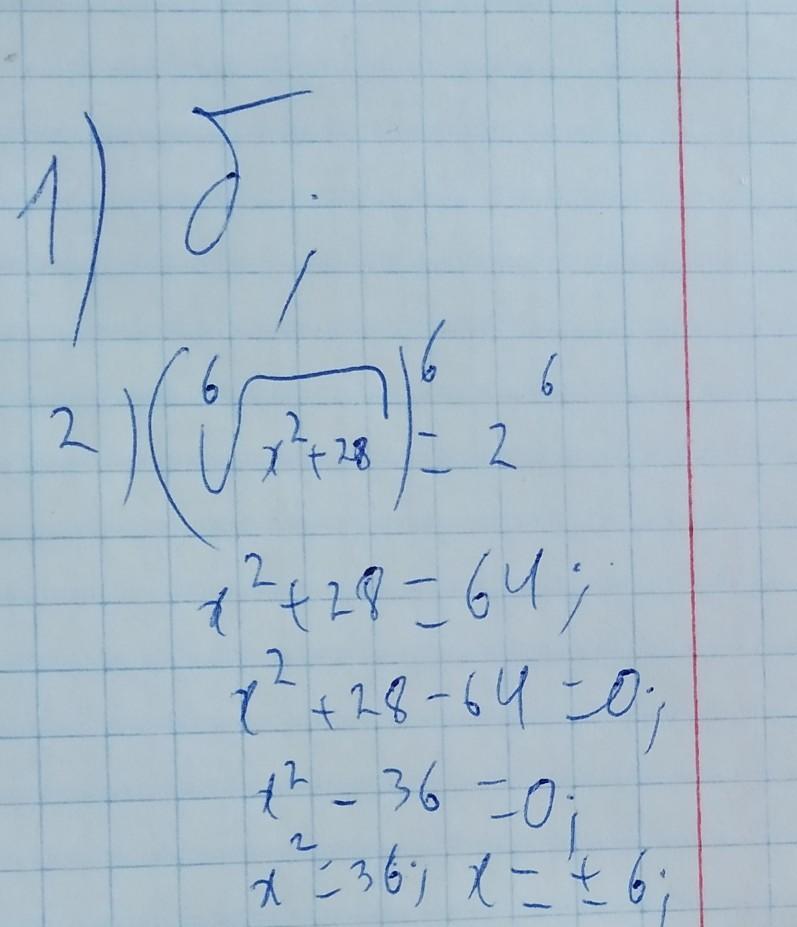 1) б;
2) (⁶√x²+28)⁶ = 2⁶
x²+28=64;
x²+28-64=0;
x² - 36 =0;
x²=36; x = ± 6;